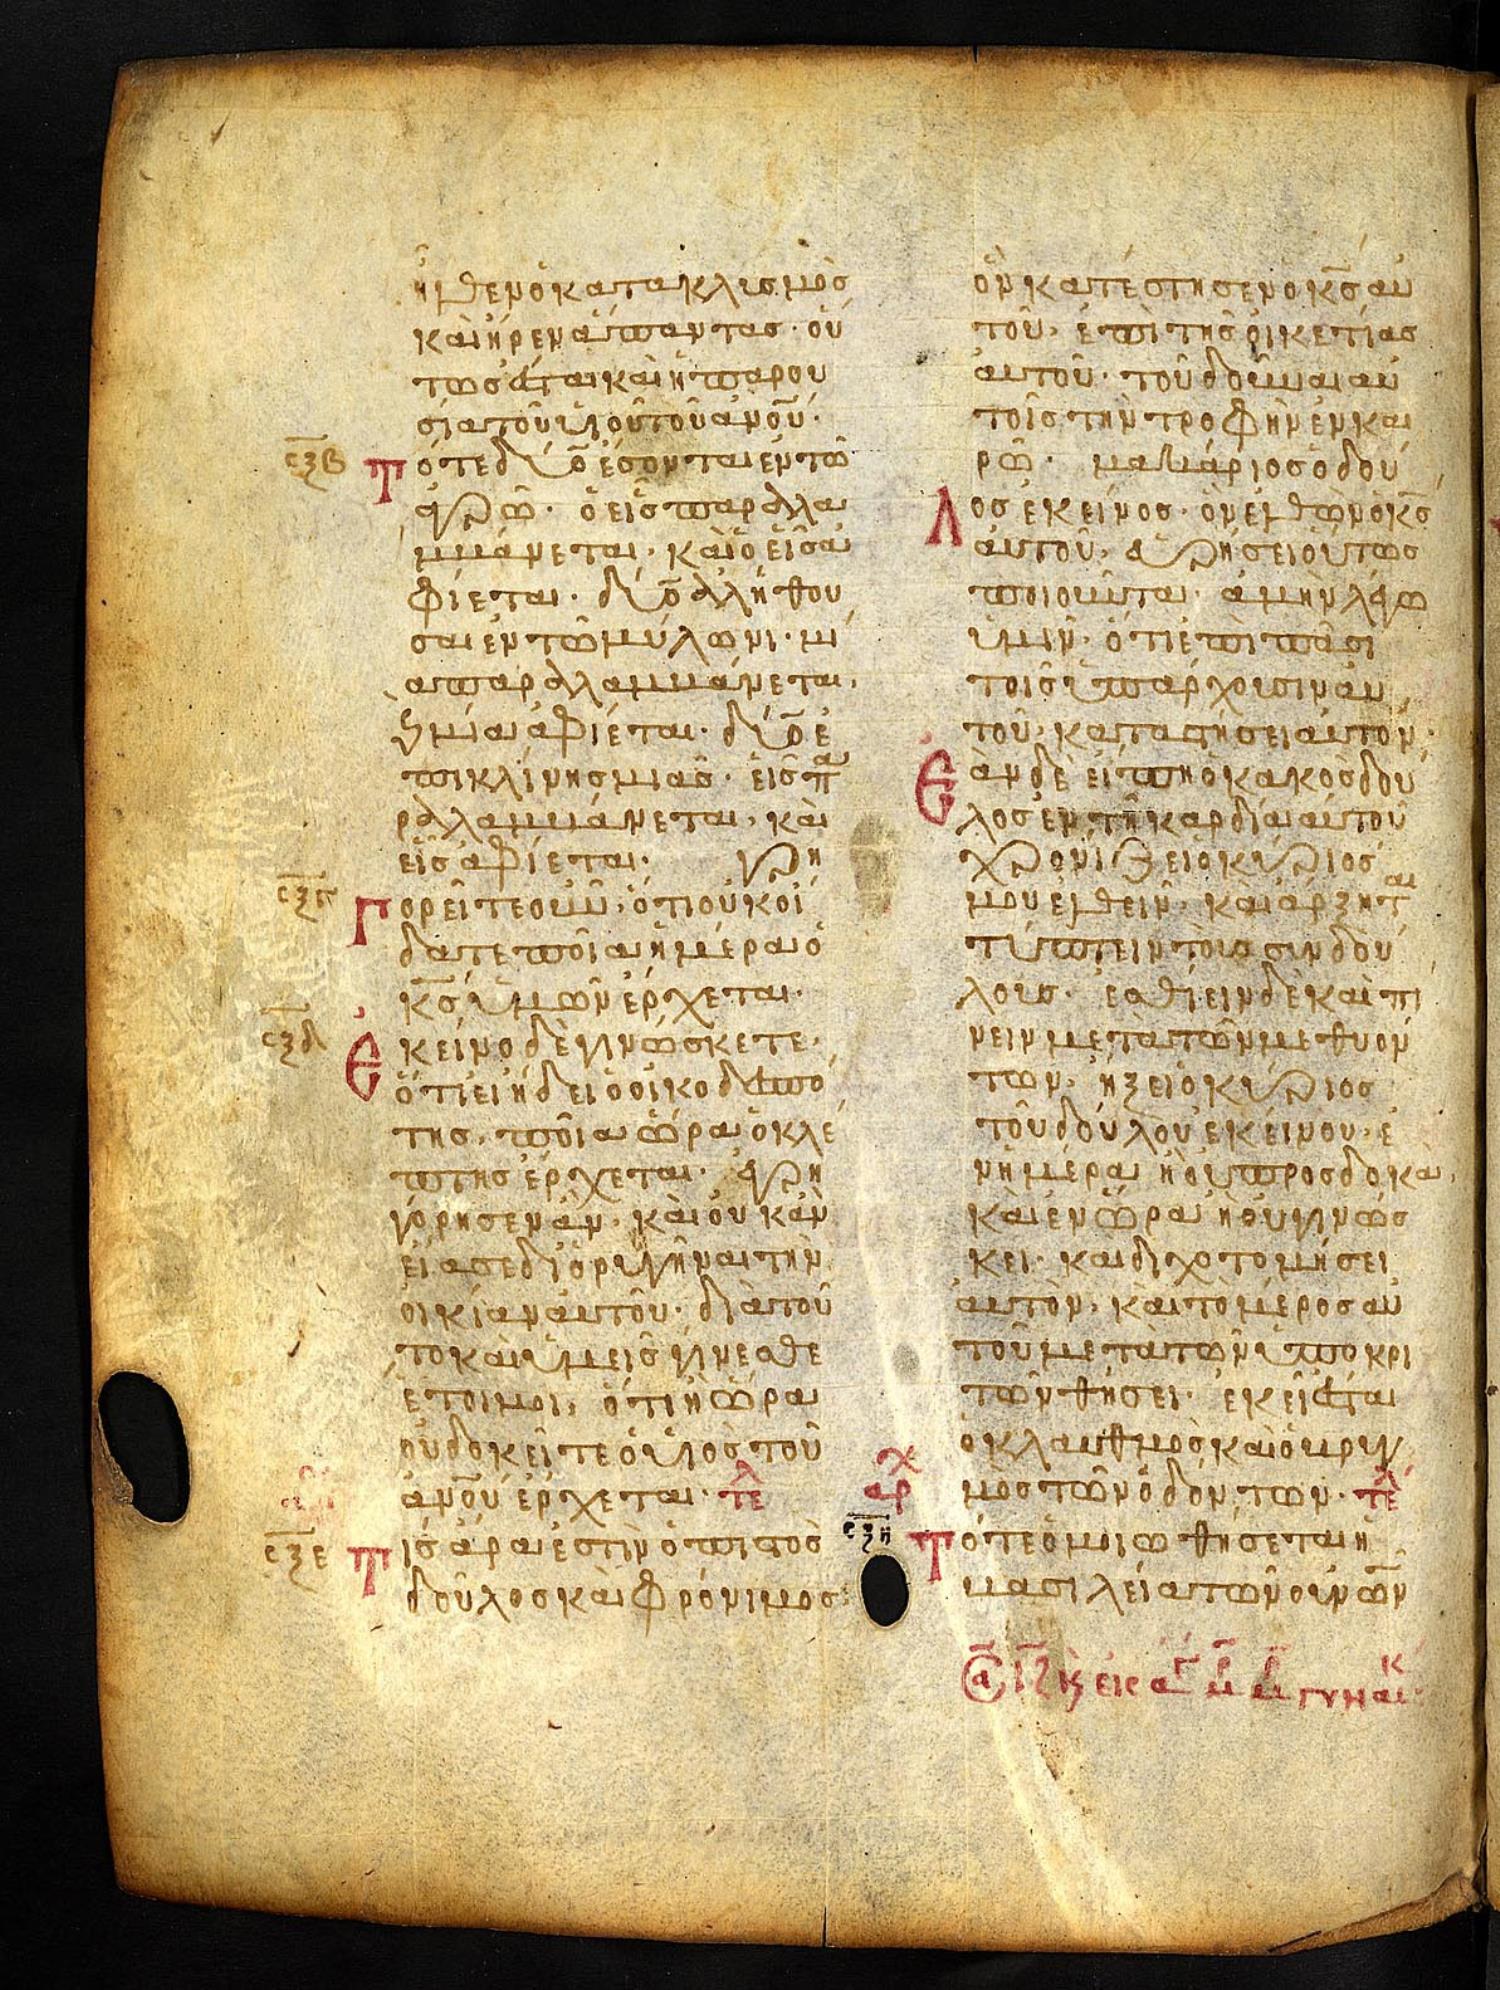 ἦλθεν ὁ κατακλυσμὸς
καὶ ἦρεν ἅπαντας· οὕ
τως ἔσται καὶ ἡ παρου
σία τοῦ υἱοῦ τοῦ ἀνου̅·
σξβ Τότε δύο ἔσονται ἐν τῶ
ἀγρῶ· ὁ εἷς παραλα
μβάνεται, καὶ ὁ εἷς ἀ
φίεται· δύο ἀλήθου
σαι ἐν τῶ μύλωνι· μί
α παραλαμβάνεται,
καὶ μία ἀφίεται· δύο ἐ
πὶ κλίνης μιᾶς· εἷς πα
ραλαμβάνεται, καὶ
εἷς ἀφίεται· γρη
σξγ Γορεῖτε οὖν, ὅτι οὐκ οἴ
δατε ποία ἡμέρα ὁ
κς̅ ὑμῶν ἔρχεται·
σξδ Ἐκεῖνο δὲ γινώσκετε,
ὅτι εἰ ἤδει ὁ οἰκοδεσπό
της, ποία ὥρα ὁ κλέ
πτης ἔρχεται· ἐγρη
γόρησεν ἂν, καὶ οὐκ ἂν
εἴασε διορυγῆναι τὴν
οἰκίαν αὐτοῦ· διὰ τοῦ
το καὶ ὑμεῖς γίνεσθε
ἕτοιμοι, ὅτι ἡ ὥρα
οὐ δοκεῖτε ὁ υἱὸς τοῦ
ἀνου̅ ἔρχεται· τελ
σξε Τίς ἄρα ἐστὶν ὁ πιστὸς
δοῦλος καὶ φρόνιμος·
ὃν κατέστησεν ὁ κς̅ αὐ
τοῦ, ἐπὶ τῆς οἰκετίας
αὐτοῦ· τοῦ δοῦναι αὐ
τοῖς τὴν τροφὴν ἐν και
ρῶ· μακάριος ὁ δοῦ
Λος ἐκεῖνος· ὃν ἐλθὼν ὁ κς̅
αὐτοῦ, εὑρήσει οὕτως
ποιοῦντα· ἀμὴν λέγω
ὑμῖν· ὅτι ἐπὶ πᾶσι
τοῖς ὑπάρχουσιν αὐ
τοῦ, καταστήσει αὐτόν·
Ἐὰν δὲ εἴπη ὁ κακὸς δοῦ
λος ἐν τῆ καρδία αὐτοῦ
χρονίζει ὁ κύριός
μου ἐλθεῖν· καὶ ἄρξηται
τύπτειν τοὺς συνδού
λους· ἐσθίειν δὲ καὶ πί
νειν μετὰ τῶν μεθυόν
των· ἥξει ὁ κύριος
τοῦ δούλου ἐκείνου, ἐ
ν ἡμέρα ἧ οὐ προσδοκᾶ,
καὶ ἐν ὥρα ἧ οὐ γινώσ
κει· καὶ διχοτομήσει
αὐτὸν, καὶ τὸ μέρος αὐ
τοῦ μετὰ τῶν ὑποκρι
τῶν θήσει· ἐκεῖ ἔσται
ὁ κλαυθμὸς καὶ ὁ βρυγ
μὸς τῶν ὀδόντων· τελ
αρχ
σξη Τότε ὁμοιωθήσεται ἡ
βασιλεία τῶν οὐνῶν